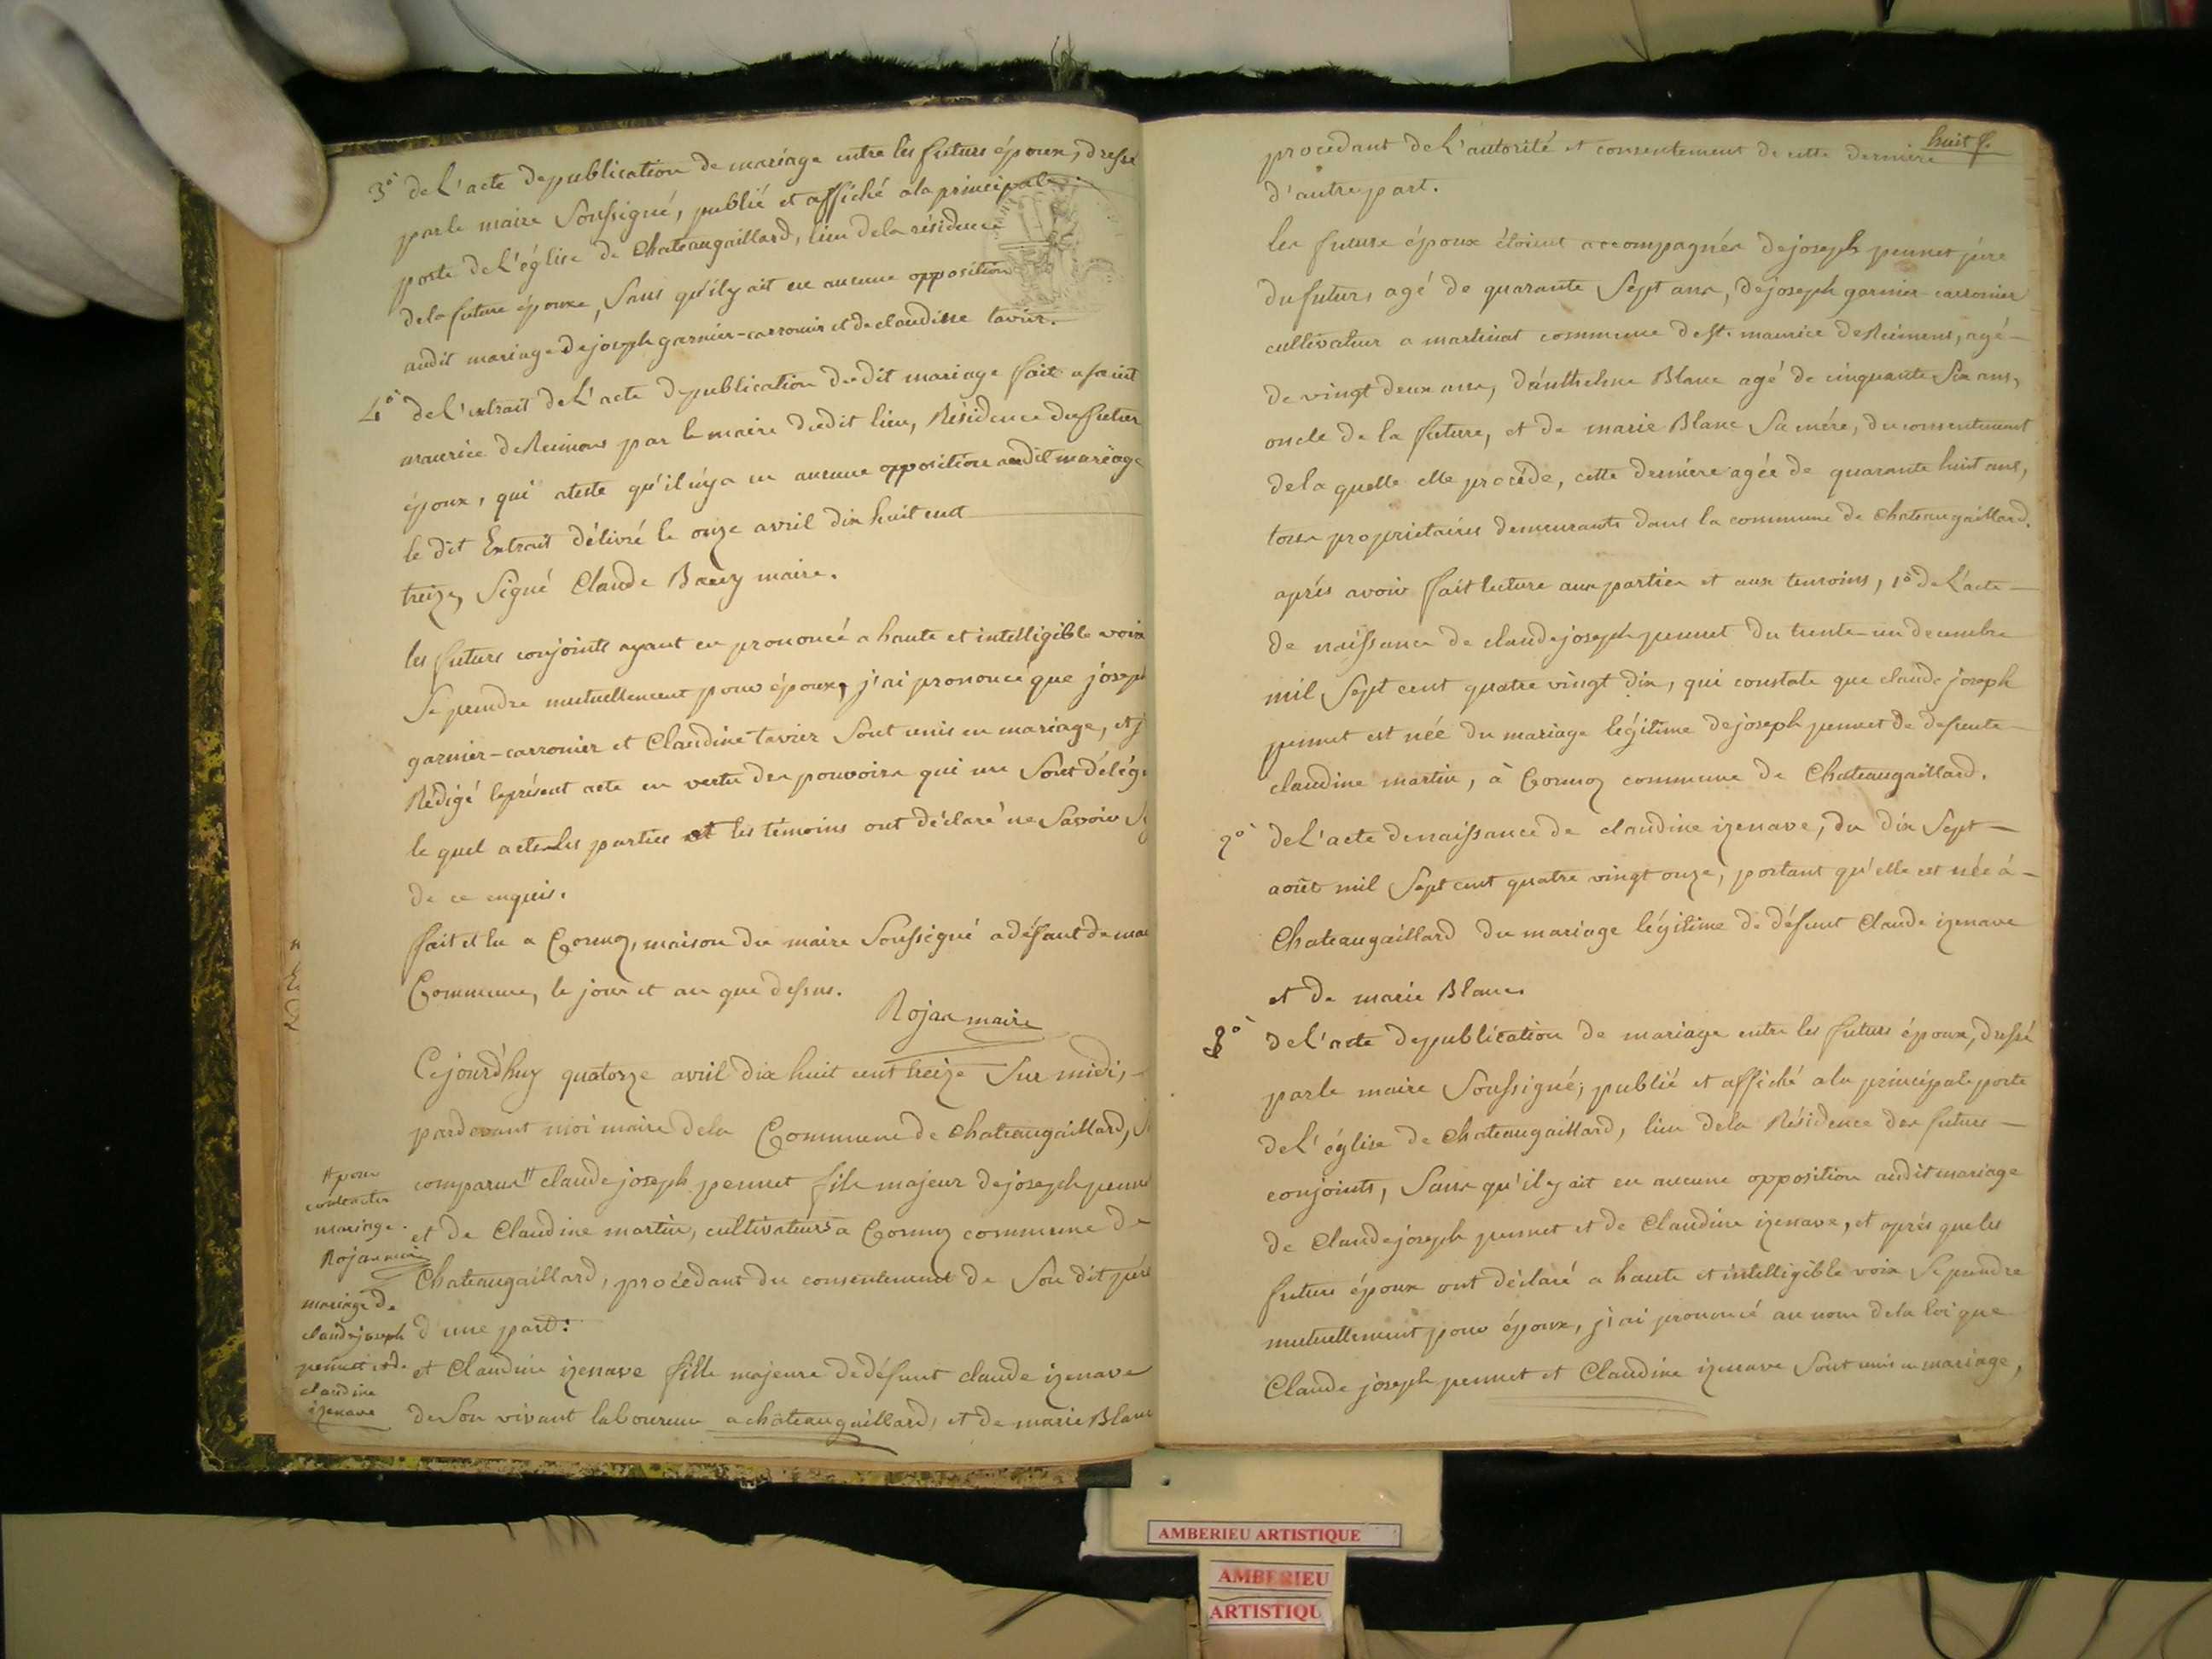 3° de L'acte de publication de mariage entre les futurs époux, dressé
par le maire Soussigné, publié et affiché a la principale
porte de L'église de Chateaugaillard, lieu de la résidence
de la future épouse, Sans qu'il y ait eu aucune opposition
audit mariage de joseph garnier-carronier et de claudine tavier.
4° de L'extrait de L'acte de publication dudit mariage fait a saint
maurice de Reimens par le maire dudit lieu, Résidence du futur
époux, qui ateste qu'il n'y a eu aucune opposition audit mariage
le dit Extrait délivré le onze avril dix huit cent
treize, Signé Claude maire.
les futurs conjoints ayant eu prononcé a haute et intelligible voix
Se prendre mutuellement pour époux, j'ai prononcé que joseph
garnier-carronier et Claudine tavier Sont unis en mariage, et j
Rédigé le présent acte en vertu des pouvoirs qui me Sont délég
le quel acte les parties et les témoins ont déclaré ne Savoir S
de ce enquis.
fait et lu a Cormoz, maison du maire Soussigné a défaut de mai
Commune, le jour et an que dessus.
Rojas maire
Cejourd'huy quatorze avril dix huit cent treize Sur midi,
pardevant moi maire de la Commune de chateaugaillard,
comparus # claude joseph pennet fils majeur de joseph penne
et de Claudine martin, cultivateurs a Cormoz commune de
Chateaugaillard, procédant du consentement de Son dit pére
d'une part:
et Claudine izenave fille majeure de défunt claude izenave
de Son vivant laboureur a châteaugaillard, et de marie Blanc
# pour
contracter
mariage.
Rojas maire
mariage de
claude joseph
pennet et de
claudine
izenave
huit f.
procédant de L'autorité et consentement de cette derniere
d'autre part.
les futurs époux étoient accompagnés de joseph pennet pére
du futur, agé de quarante Sept ans, de joseph garnier-carronier
cultivateur a martinat commune de St. maurice de Reimens, agé
de vingt deux ans, d'anthelme Blanc agé de cinquante Six ans,
oncle de la future, et de marie Blanc Sa mére, du consentement
de la quelle elle procéde, cette derniere agée de quarante huit ans,
tous propriétaires demeurants dans la commune de Chateaugaillard.
aprés avoir fait lecture aux parties et aux temoins, 1° de L'acte
de naissance de claude joseph pennet du trente un decembre
mil Sept cent quatre vingt dix, qui constate que claude joseph
pennet est née du mariage légitime de joseph pennet de defunte
claudine martin, à Cormoz commune de Chateaugaillard.
2° de L'acte de naissance de claudine izenave, du dix Sept
août mil Sept cent quatre vingt onze, portant qu'elle est née à
Chateaugaillard du mariage légitime de défunt Claude izenave
et de marie Blanc.
3° de L'acte de publication de mariage entre les futurs époux, dressé
par le maire Soussigné; publié et affiché a la principale porte
de L'église de Chateaugaillard, lieu de la Résidence des futurs
conjoints, Sans qu'il y ait eu aucune opposition audit mariage
de Claude joseph pennet et de Claudine izenave, et aprés que les
futurs époux ont déclaré a haute et intelligible voix Se prendre
mutuellement pour époux, j'ai prononcé au nom de la loi que
Claude joseph pennet et Claudine izenave Sont unis en mariage,
AMBERIEU ARTISTIQUE
AMBERIEU
ARTISTIQU